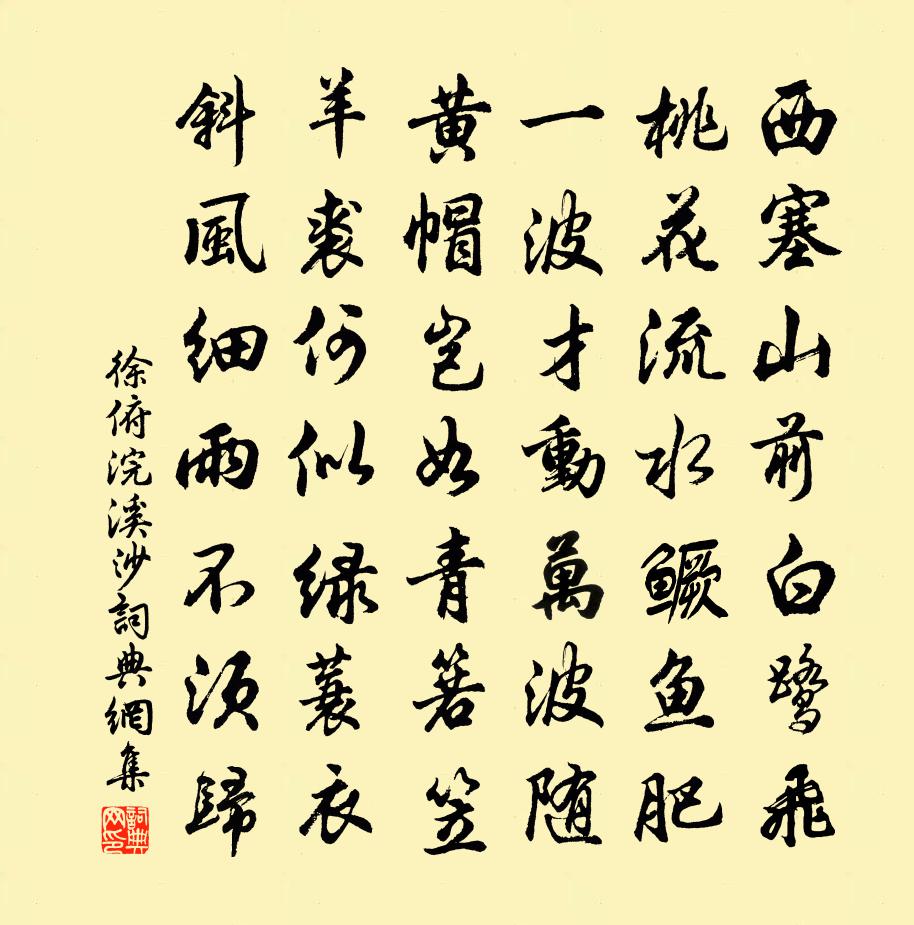 西塞山前白鹭飛
桃花流水鳜鱼肥
一波才動萬波随
黄帽岂如青箬笠
羊裘何似绿蓑衣
斜風细雨不须歸
徐俯浣溪沙詞典網集
詞典網印